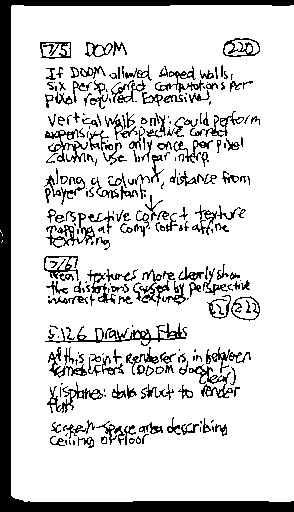 7/5 DOOM 220
If DOOM allowed sloped walls,
six persp. correct computations per
pixel required. Expensive!
Vertical walls only: could perform
expensive perspective correct
computation only once per pixel
column, use linear interp.
Along a column, distance from
player is constant.
Perspective correct texture
mapping at comp. cost of affine
texturing
7/6
Real textures more clearly show
the distortions caused by perspective
incorrect affine textures.
221 222
5.12.6 Drawing Flats
At this point renderer is in between
framebuffers (DOOM doesn't
clear)
Visplanes: data struct to render
flats
screen-space area describing
ceiling or floor